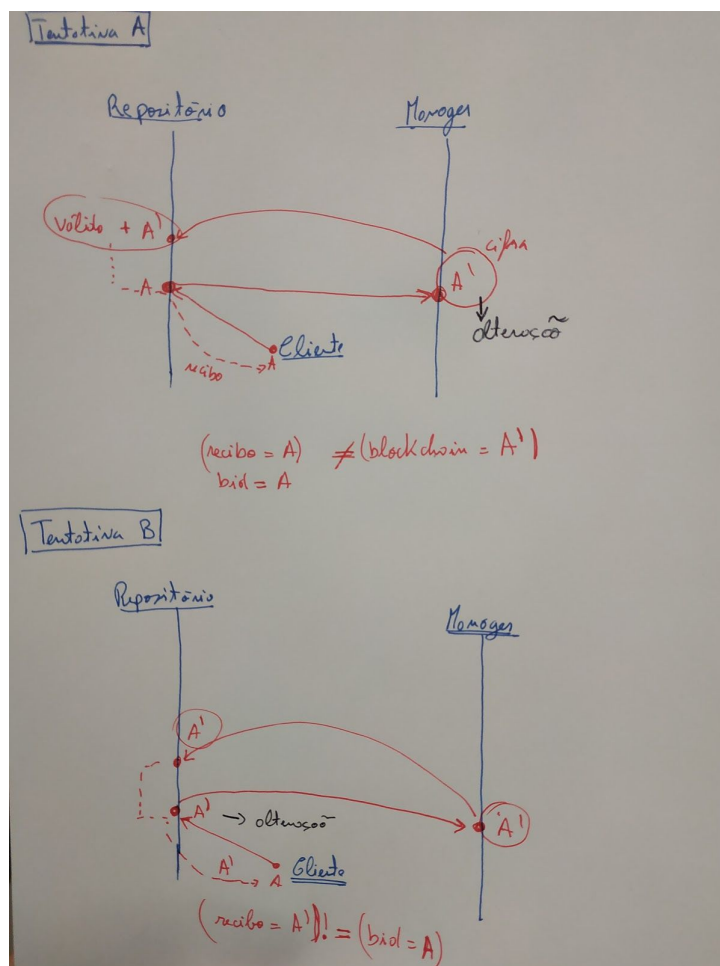 Tentativa A
Repositório Manager
Válido + A'
cifra
A A'
alteração
Cliente
A
recibo
(recibo = A) ≠ (blockchain = A')
bid = A
Tentativa B
Repositório
Manager
A'
A' → alteração A'
A' A Cliente
(recibo = A')! = (bid = A)